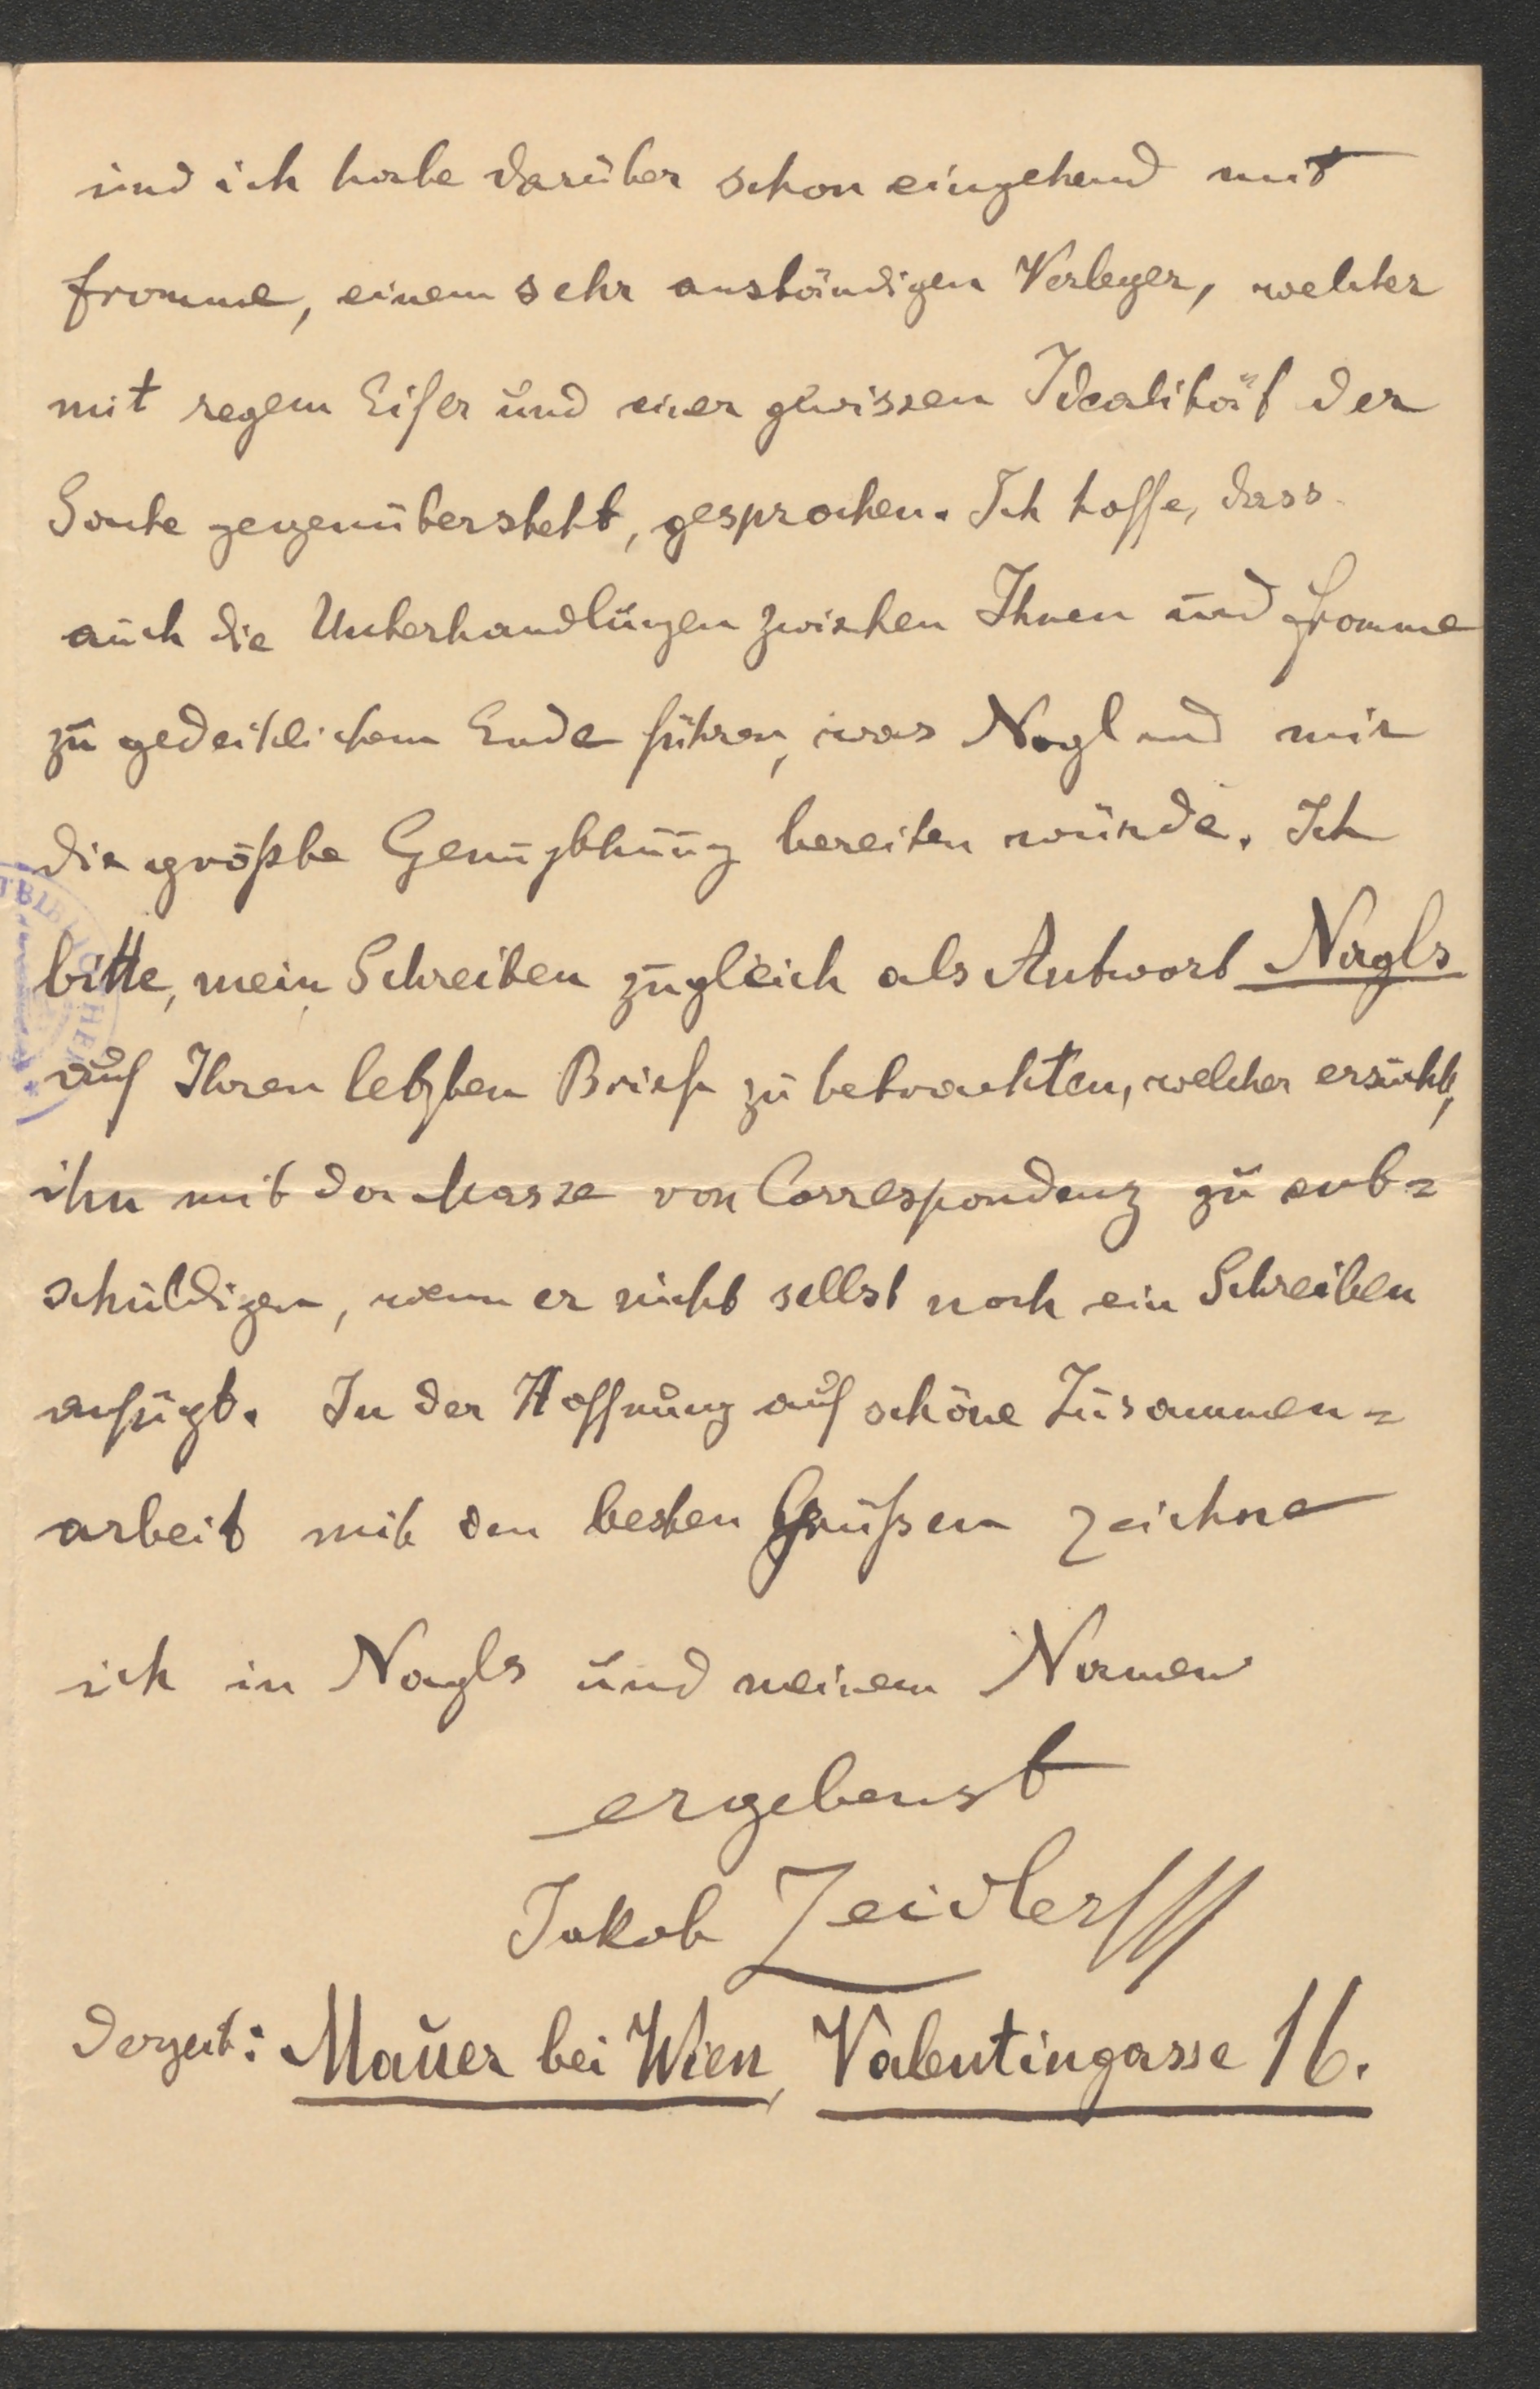 und ich habe darüber schon eingehend mit
Fromme, einem sehr anständigen Verleger, welcher
mit regem Eifer und einer gewissen Idealität der
Sache gegenübersteht, gesprochen. Ich hoffe, dass
auch die Unterhandlungen zwischen Ihnen und Fromme
zu gedeihlichem Ende führen, was Nagl und mir
die größte Genugthuung bereiten würde. Ich
bitte, mein Schreiben zugleich als Antwort Nagls
auf Ihren letzten Brief zu betrachten, welcher ersucht,
ihn mit der Masse von Correspondenz zu ent=
schuldigen, wenn er nicht selbst noch ein Schreiben
anfügt. In der Hoffnung auf schöne Zusammen=
arbeit mit den besten Grüßen zeichne
ich in Nagls und meinem Namen
ergebenst
Jakob Zeidler
derzeit: Mauer bei Wien, Valentingasse 16.